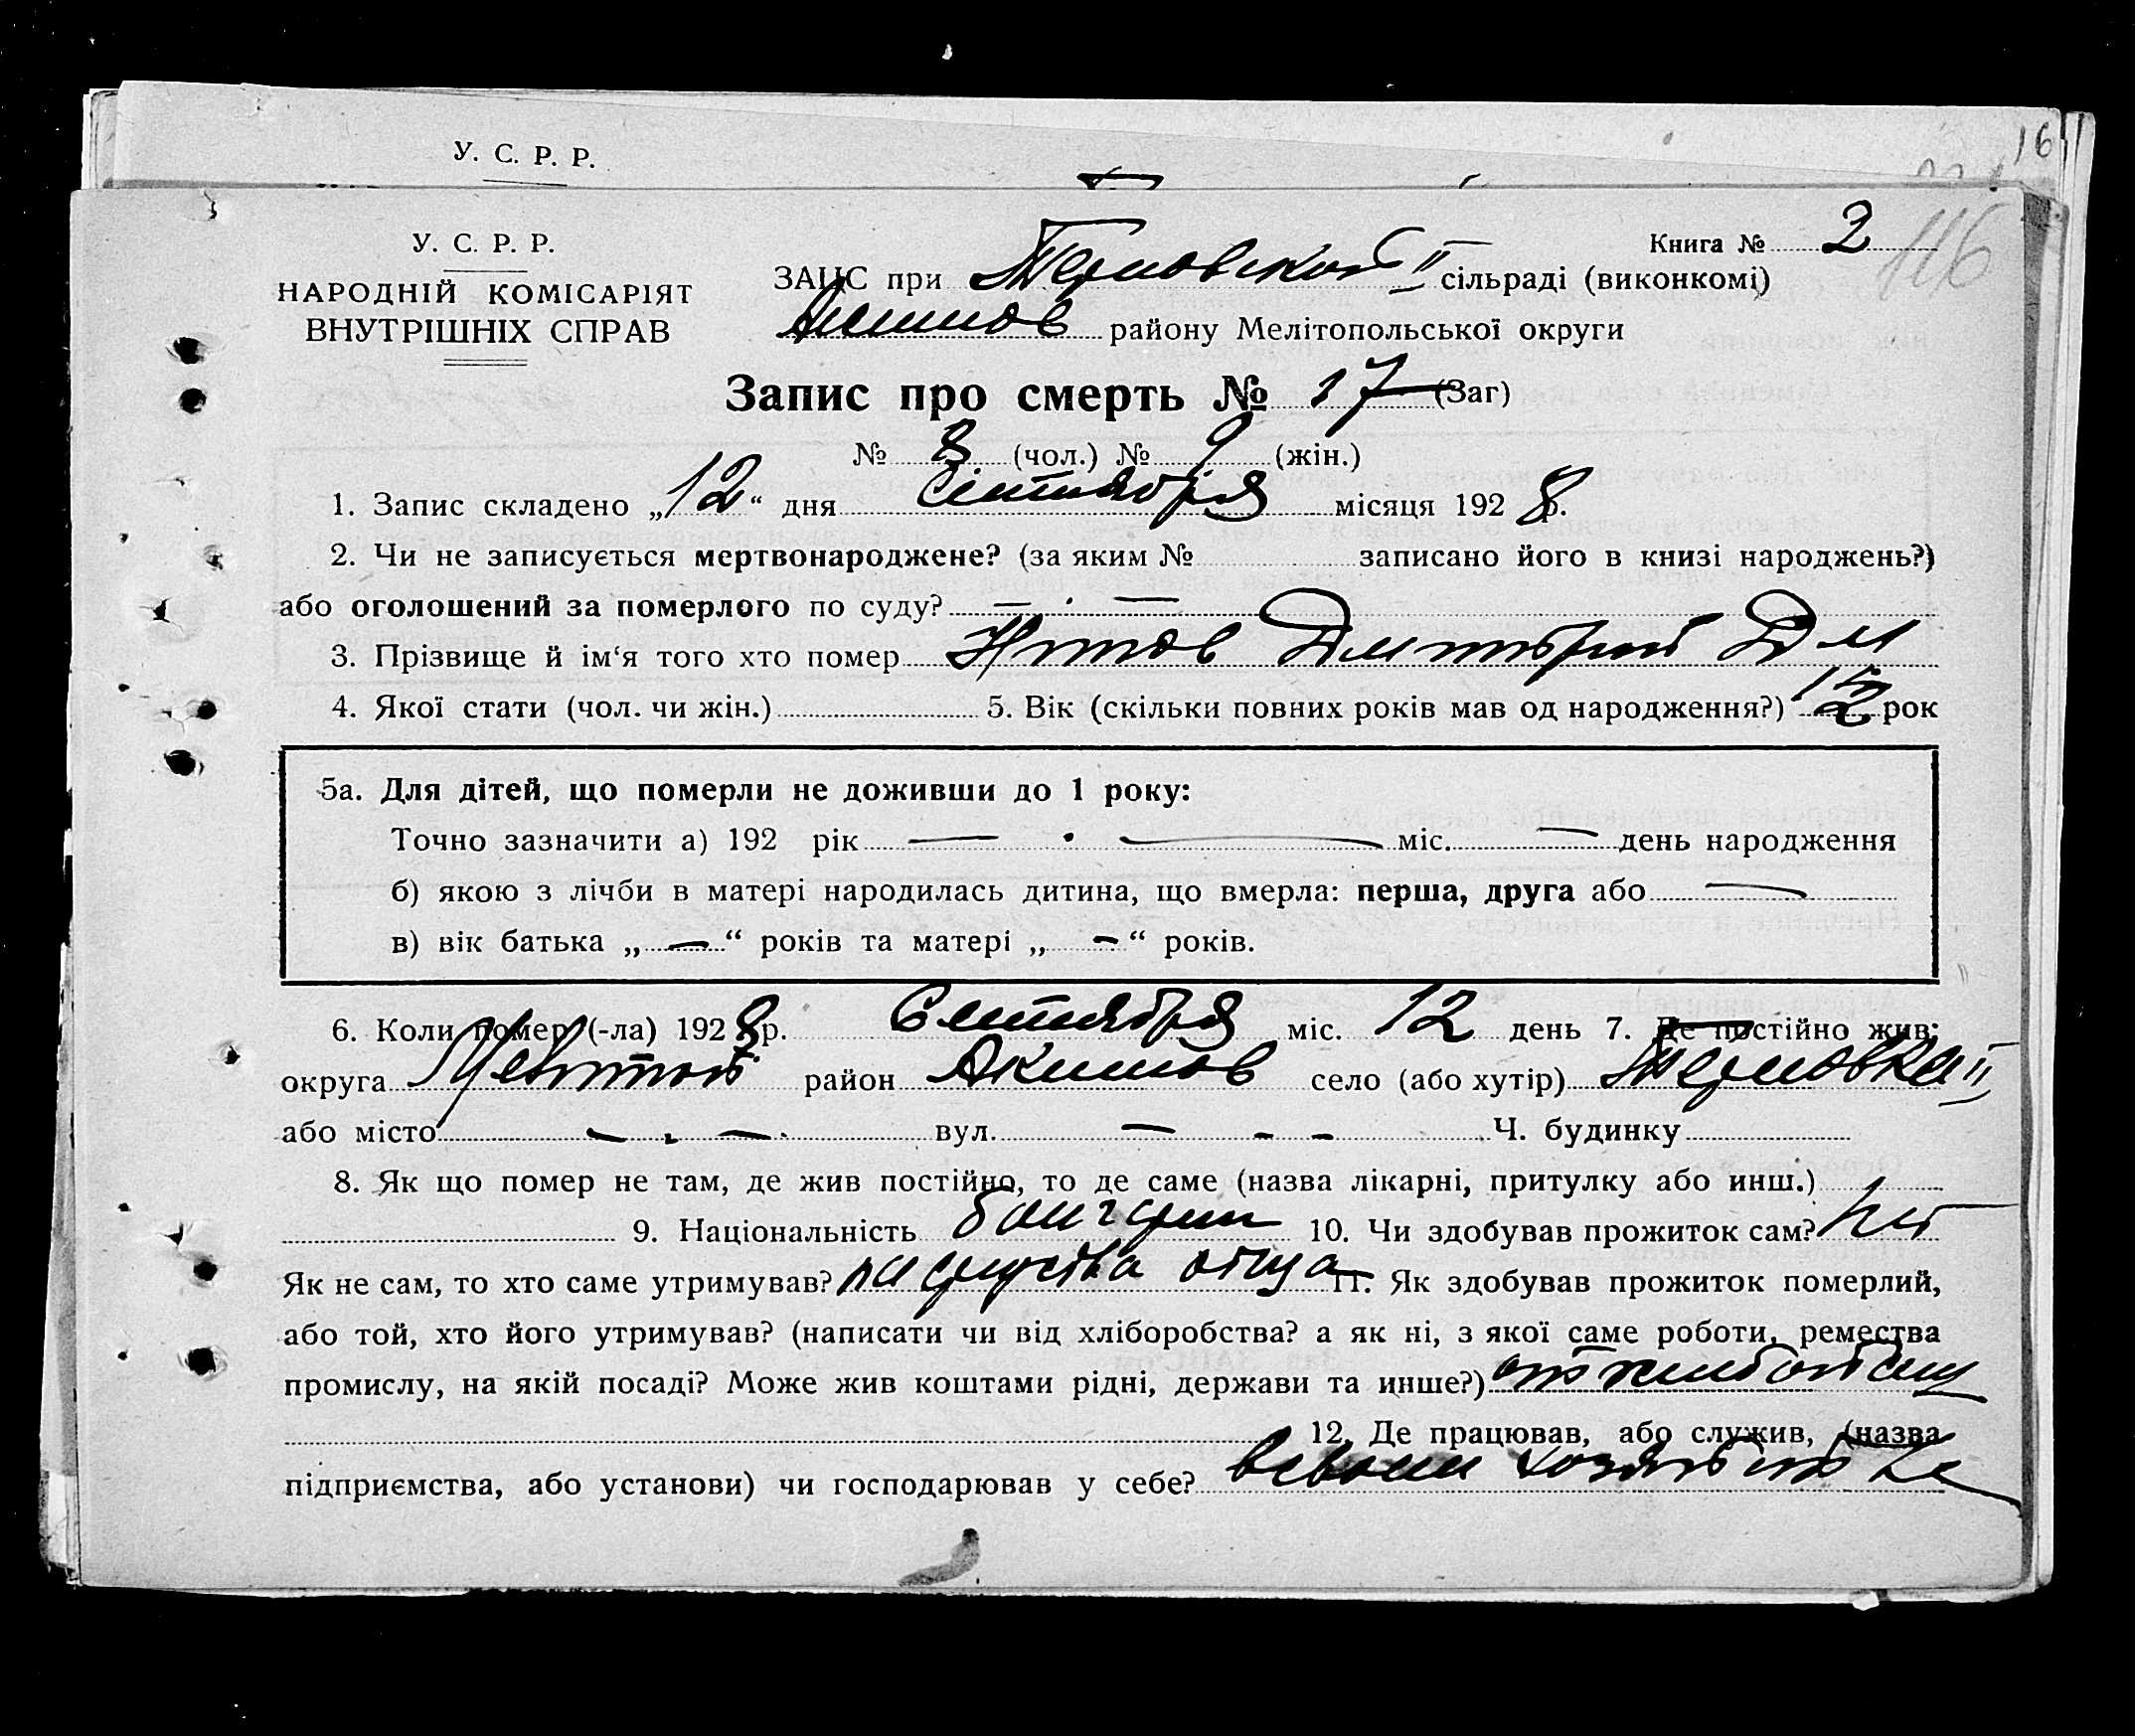 У. С. Р. Р.
16
У. С. Р. Р.
НАРОДНІЙ КОМІСАРІЯТ
ВНУТРІШНІХ СПРАВ
Книга № 2
116
ЗАЦС при Терновской II сільраді (виконкомі)
Акимов району Мелітопольської округи
Запис про смерть № 17 (Заг)
№ 8 (чол.) № 9 (жін.)
1. Запис складено „12“ дня Сентября місяця 1928 р.
2. Чи не записується мертвонароджене? (за яким № записано його в книзі народжень?)
або оголошений за померлого по суду? — . —
3. Прізвище й ім‘я того хто помер Дмитрий Дм
4. Якої стати (чол. чи жін.) 5. Вік (скільки повних років мав од народження?) рок
5а. Для дітей, що померли не доживши до 1 року:
Точно зазначити а) 192 рік — . — міс. — день народження
б) якою з лічби в матері народилась дитина, що вмерла: перша, друга або —
в) вік батька „—“ років та матері „—“ років.
6. Коли помер (-ла) 1928 р. Сентября міс. 12 день 7. Де постійно жив:
округа район Акимов село (або хутір) Терновка II
або місто — . — . вул. — - - Ч. будинку
8. Як що помер не там, де жив постійно, то де саме (назва лікарні, притулку або инш.)
9. Національність болгарин 10. Чи здобував прожиток сам? Нет
Як не сам, то хто саме утримував? на средства отца 11. Як здобував прожиток померлий,
або той, хто його утримував? (написати чи від хліборобства? а як ні, з якої саме роботи, ремества
промислу, на якій посаді? Може жив коштами рідні, держави та инше?) от
12. Де працював, або служив, (назва
підприємства, або установи) чи господарював у себе? в своем хозяйстве